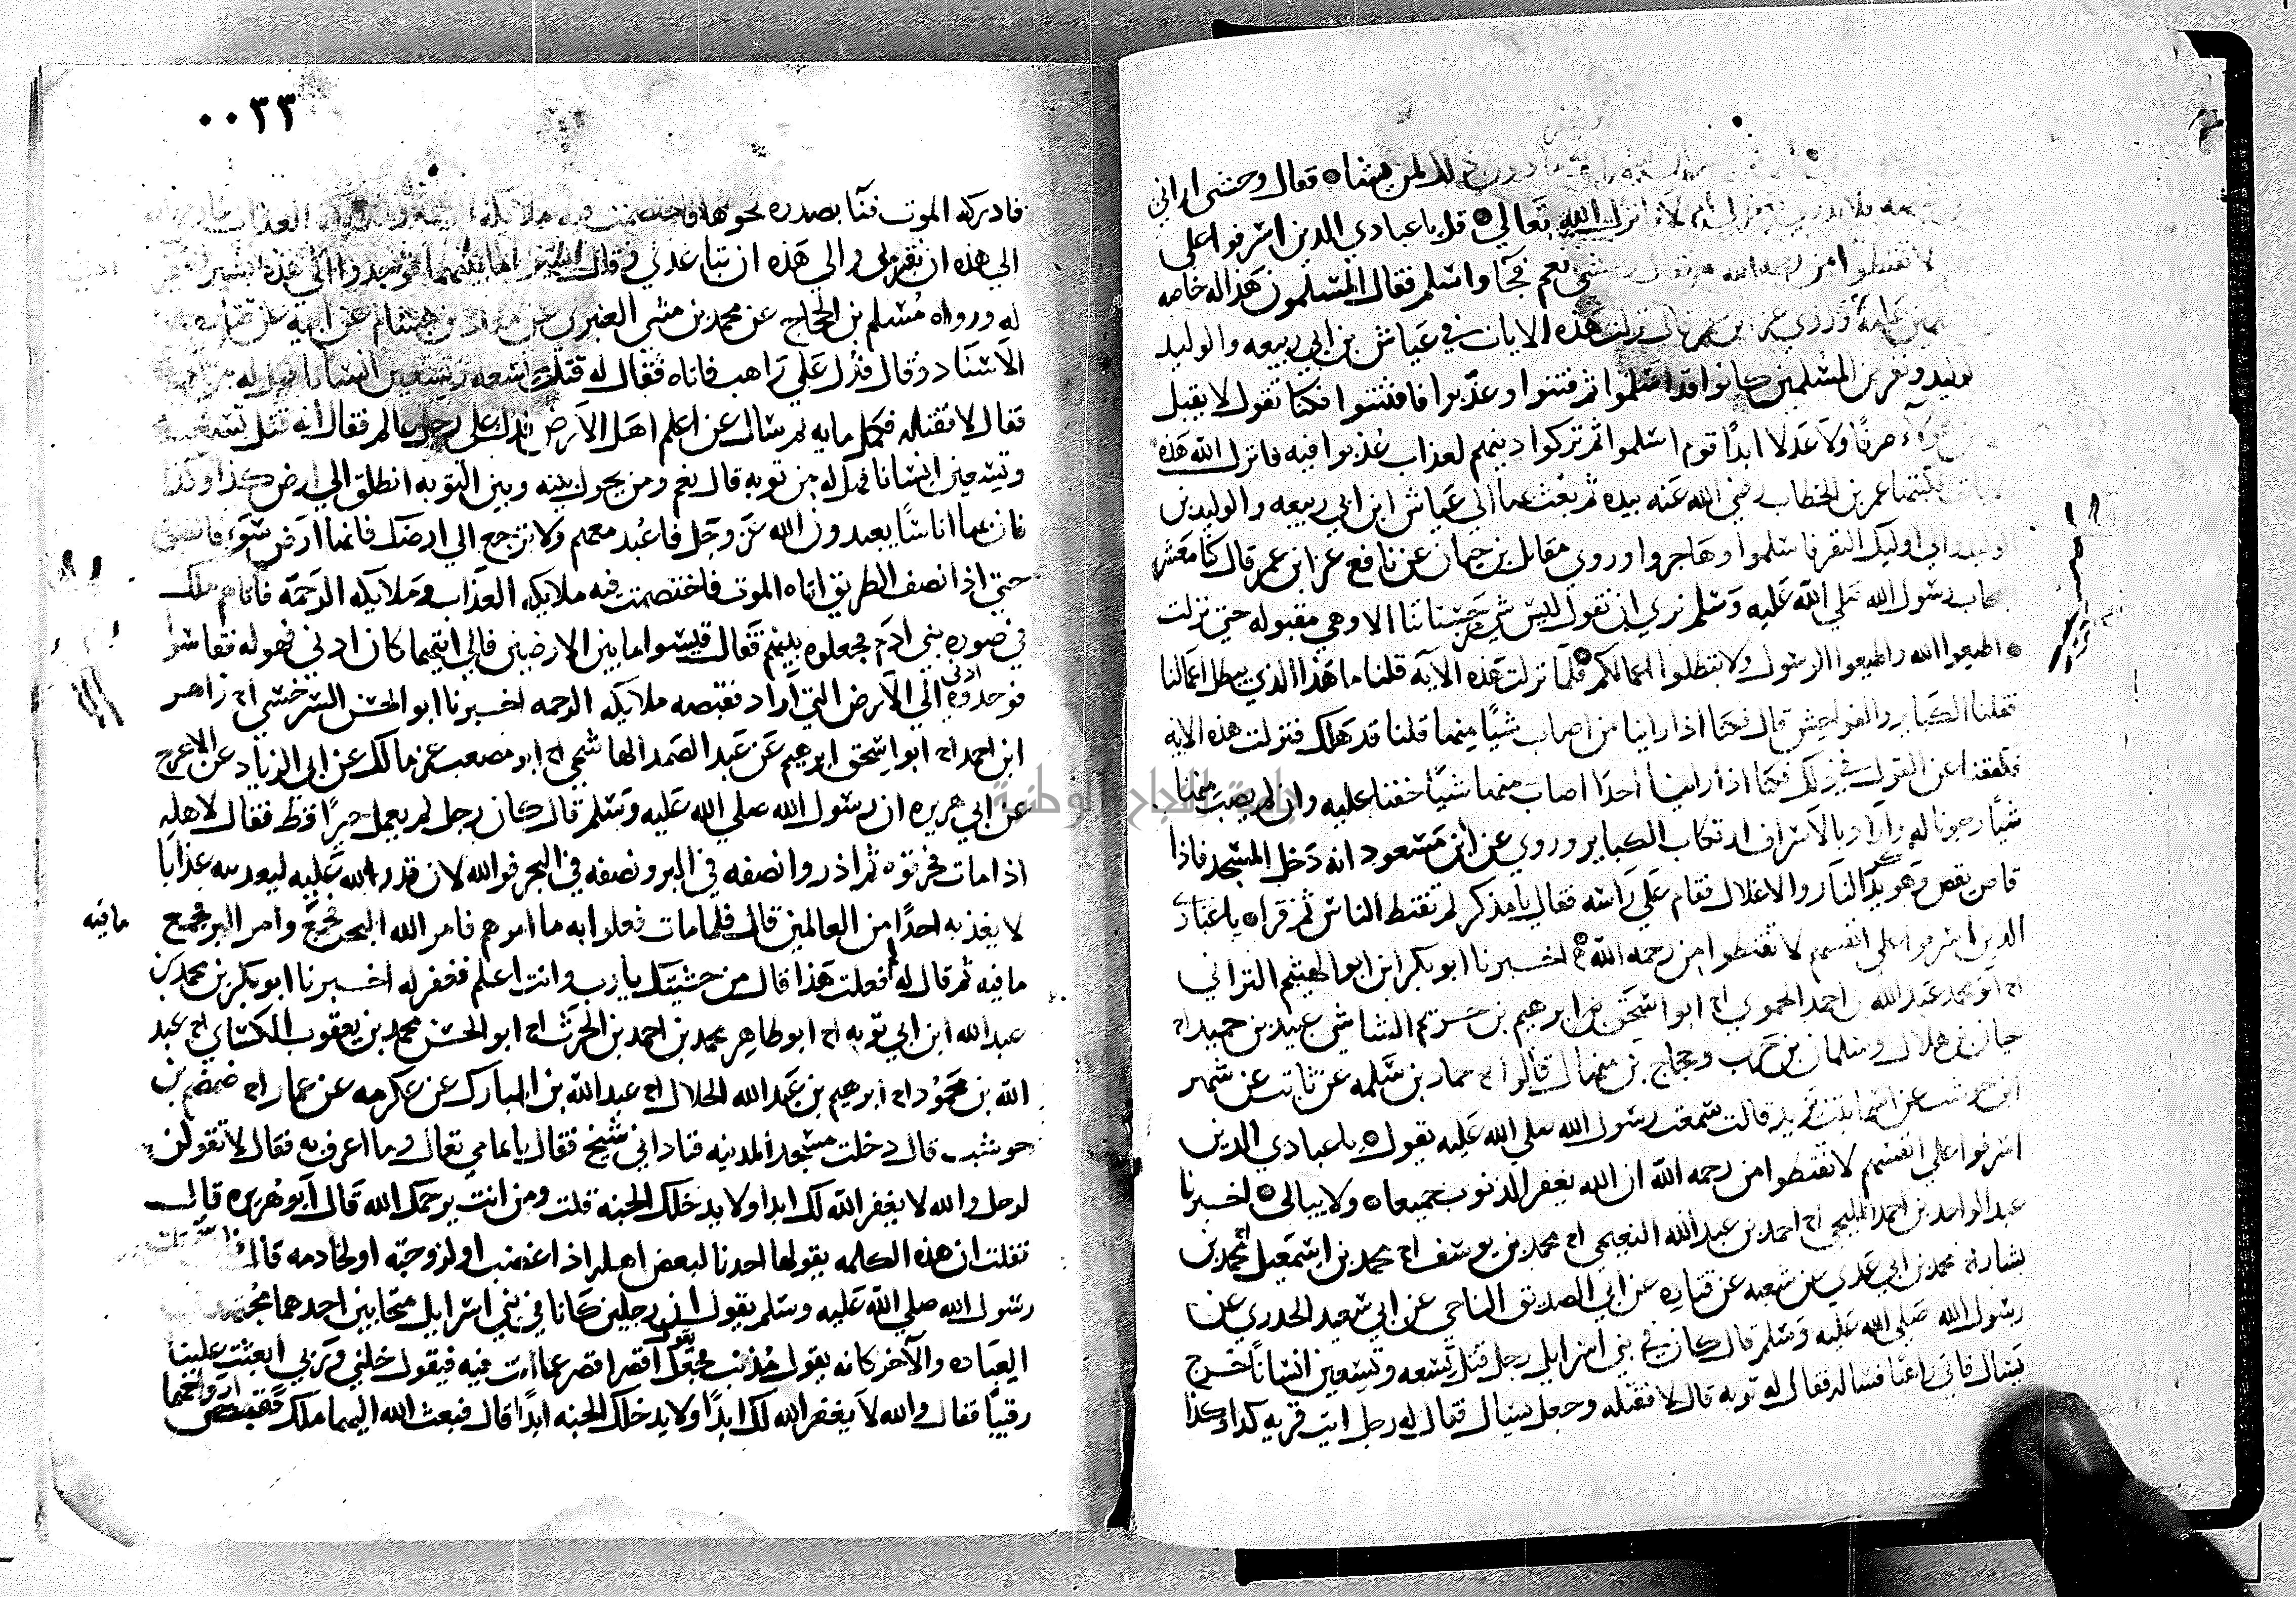 ما دون ذلك لمن يشاء فقال وحشي اراني
انزل الله تعالي قل يا عبادي الذين اسرفوا علي
لا تقنطوا من رحمه الله نعم فجا واسلم فقال المسلمون هذا له خاصه
عامه وروي عن ابن عمر قال نزلت هذه الايات في عياش بن ابي ربيعه والوليد
الوليد ونفر من المسلمين كانوا قد اسلموا ثم فتنوا وعذبوا فافتتنوا فكنا نقول لا يقبل
صرفا ولا عدلا ابدا قوم اسلموا ثم تركوا دينهم لعذاب عذبوا فيه فانزل الله هذه
فكتبها عمر بن الخطاب رضي الله عنه بيده ثم بعث بها الي عياش ابن ابي ربيعه والوليد بن
الوليد والي اوليك النفر فاسلموا وهاجروا وروي مقاتل بن حيان عن نافع عن ابن عمر قال كنا معشر
اصحاب رسول الله صلي الله عليه وسلم نري ان نقول ليس شي من حسناتنا الا وهي مقبوله حتي نزلت
اطيعوا الله واطيعوا الرسول ولا تبطلوا اعمالكم فلما نزلت هذه الايه قلنا ما هذا الذي يبطل اعمالنا
فقلنا الكباير والفواحش قال فكنا اذا راينا من اصاب شيا منها قلنا قد هلك فنزلت هذه الايه
فكففنا عن القول في ذلك فكنا اذا راينا احدا اصاب منها شيا خفنا عليه وان لم يصب منها
شيا رجونا له واراد بالاسراف ارتكاب الكباير وروي عن ابن مسعود انه دخل المسجد فاذا
قاص يقص وهو يذكر النار والاغلال فقام علي راسه فقال يا مذكر لم تقنط الناس ثم قرا يا عبادي
الذين اسرفوا علي انفسهم لا تقنطوا من رحمه الله اخبرنا ابو بكر ابن ابو الهيثم الترابي
انا ابو محمد عبد الله بن احمد الحموي انا ابو اسحق بن ابرهيم بن خريم الشاشي عبيد بن حميد انا
حيان بن هلال وسلمان بن حرب وحجاج بن منهال قالوا انا حماد بن سلمه عن ثابت عن شهر
ابن حوشب عن اسما بنت يزيد قالت سمعت رسول الله صلي الله عليه يقول يا عبادي الذين
اسرفوا علي انفسهم لا تقنطوا من رحمه الله ان الله يغفر الذنوب جميعا ولا يبالي اخبرنا
عبد الواحد بن احمد المليحي انا احمد بن عبد الله النعيمي انا محمد بن يوسف انا محمد بن اسمعيل انا محمد بن
بشار انا محمد بن ابي عدي عن شعبه عن قتاده عن ابي الصديق الناجي عن ابي سعيد الخدري عن
رسول الله صلي الله عليه وسلم قال كان في بني اسرايل رجل قتل تسعه وتسعين انسانا خرج
يسال فاتي راهبا فساله فقال له توبه قال لا فقتله وجعل يسال فقال له رجل ايت قريه كذا وكذا
٠٠٣٣
فادركه الموت فنا بصدره نحوها فاختصمت فيه ملايكه الرحمه وملايكه العذاب
الي هذه ان تقربي والي هذه ان تباعدي وقال قيسوا ما بينهما فوجدوا الي هذه بشبر
له ورواه مسلم بن الحجاج عن محمد بن مثني العنبري عن معاذ بن هشام عن ابيه عن
الاسناد وقال فدل علي راهب فاتاه فقال له قتل تسعه وتسعين انسانا فهل له من
فقال لا فقتله فكمل مايه ثم سال عن اعلم اهل الارض فدل علي رجل عالم فقال انه قتل تسعه
وتسعين انسانا فهل له من توبه قال نعم ومن يحول بينه وبين التوبه انطلق الي ارض كذا وكذا
فان بها اناسا يعبدون الله عز وجل فاعبد معهم ولا ترجع الي ارضك فانها ارض سوء فانطلق
حتي اذا نصف الطريق اتاه الموت فاختصمت فيه ملايكه العذاب وملايكه الرحمه فاتاهم ملك
في صوره بني ادم فجعلوه بينهم فقال قيسوا ما بين الارضين فالي ايتهما كان ادني فهو له فقاسوا
فوجدوه ادني الي الارض التي اراد فقبضه ملايكه الرحمه اخبرنا ابو الحسن السرخسي انا زاهر
ابن احمد انا ابو اسحق ابرهيم عن عبد الصمد الهاشمي انا ابو مصعب عن مالك عن ابي الزناد عن الاعرج
عن ابي هريره ان رسول الله صلي الله عليه وسلم قال كان رجل لم يعمل خيرا قط فقال لاهله
اذا مات فحرقوه ثم اذروا نصفه في البر ونصفه في البحر فوالله لان قدر الله عليه ليعذبنه عذابا
لا يعذبه احدا من العالمين قال فلما مات فعلوا به ما امرهم فامر الله البحر فجمع وامر البر فجمع
ما فيه
ما فيه ثم قال له لم فعلت هذا قال من خشيتك يا رب وانت اعلم فغفر له اخبرنا ابو بكر بن محمد بن
عبد الله ابن ابي توبه انا ابو طاهر محمد بن احمد بن الحرث انا ابو الحسن محمد بن يعقوب الكسائي انا عبد
الله بن محمود انا ابرهيم بن عبد الله الخلال انا عبد الله بن المبارك عن عكرمه عن عمار انا ضمضم بن
حوشب قال دخلت مسجد المدينه فناداني شيخ فقال يا يمامي تعال وما اعرفه فقال لا تقولن
لرجل والله لا يغفر الله لك ابدا ولا يدخلك الجنه قلت ومن انت يرحمك الله قال ابو هريره قال
فقلت ان هذه الكلمه يقولها احدنا لبعض اهله اذا غضب او لزوجته او لخادمه قال
رسول الله صلي الله عليه وسلم يقول ان رجلين كانا في بني اسرايل متحابين احدهما مجتهد
العباده والاخر كانه يقول مذنب فجعل يقول اقصر اقصر عما انت فيه فيقول خلني وربي ابعثت علينا
رقيبا فقال والله لا يغفر الله لك ابدا ولا يدخلك الجنه ابدا قال فبعث الله اليهما ملك فقبض ارواحهما